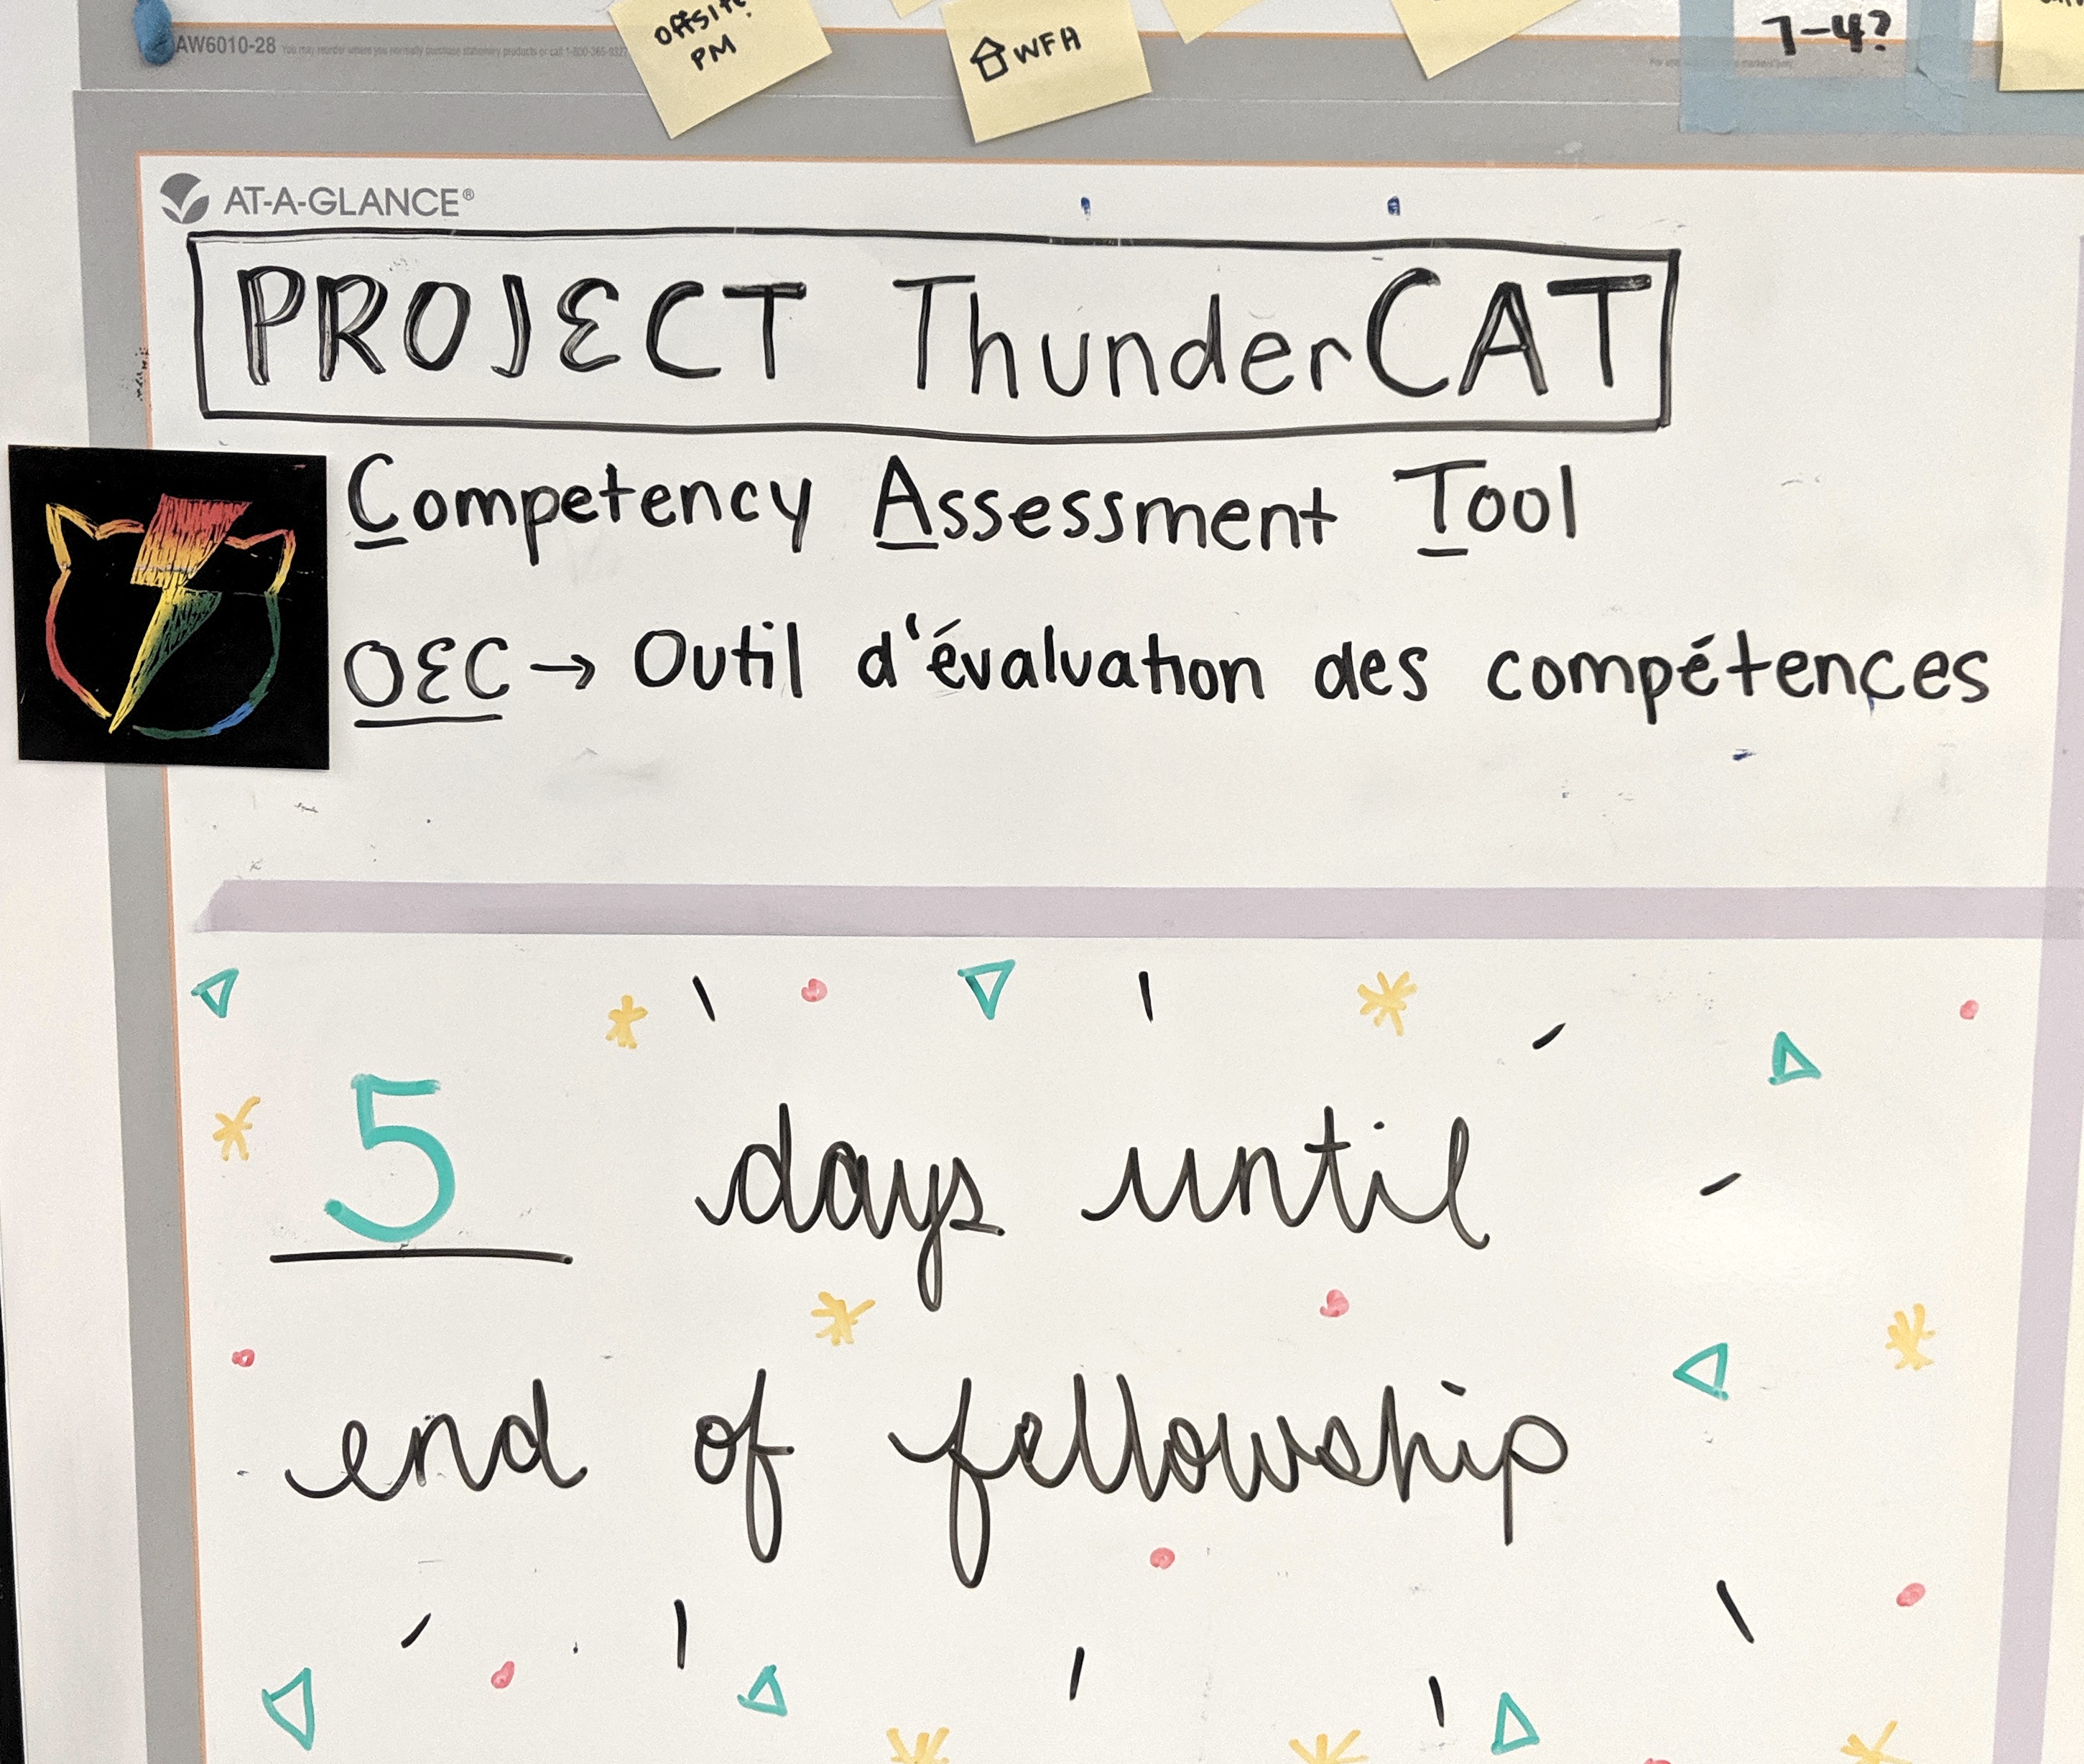 offsite!
PM
WFH
7-4?
AW6010-28 You may reorder where you normally purchase stationery products or call 1-800-365-9327
AT-A-GLANCE®
PROJECT ThunderCAT
Competency Assessment Tool
OEC → Outil d'évaluation des compétences
5 days until
end of fellowship